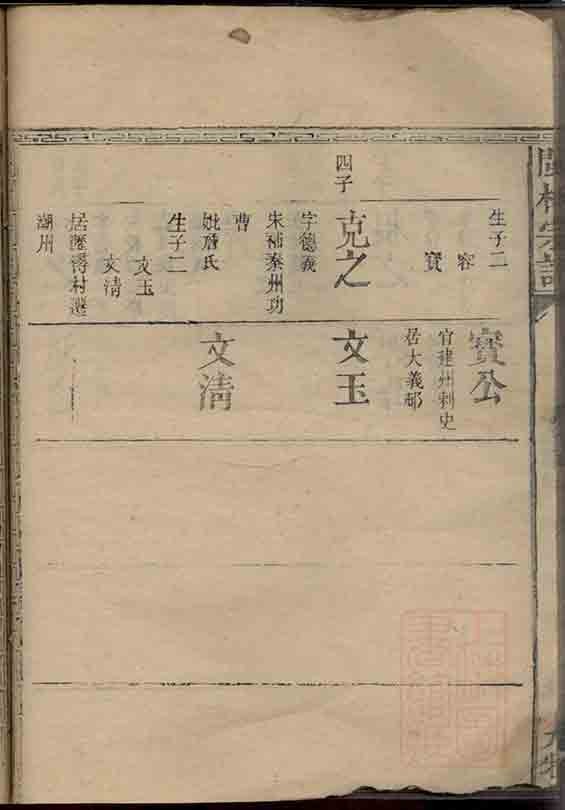 生子二
容
寶
四子
克之
字德義
朱補泰州功
曹
妣詹氏
生子二
文玉
文清
居壢潯村遷
湖州
寶公
官建州刺史
居大義邨
文玉
文清